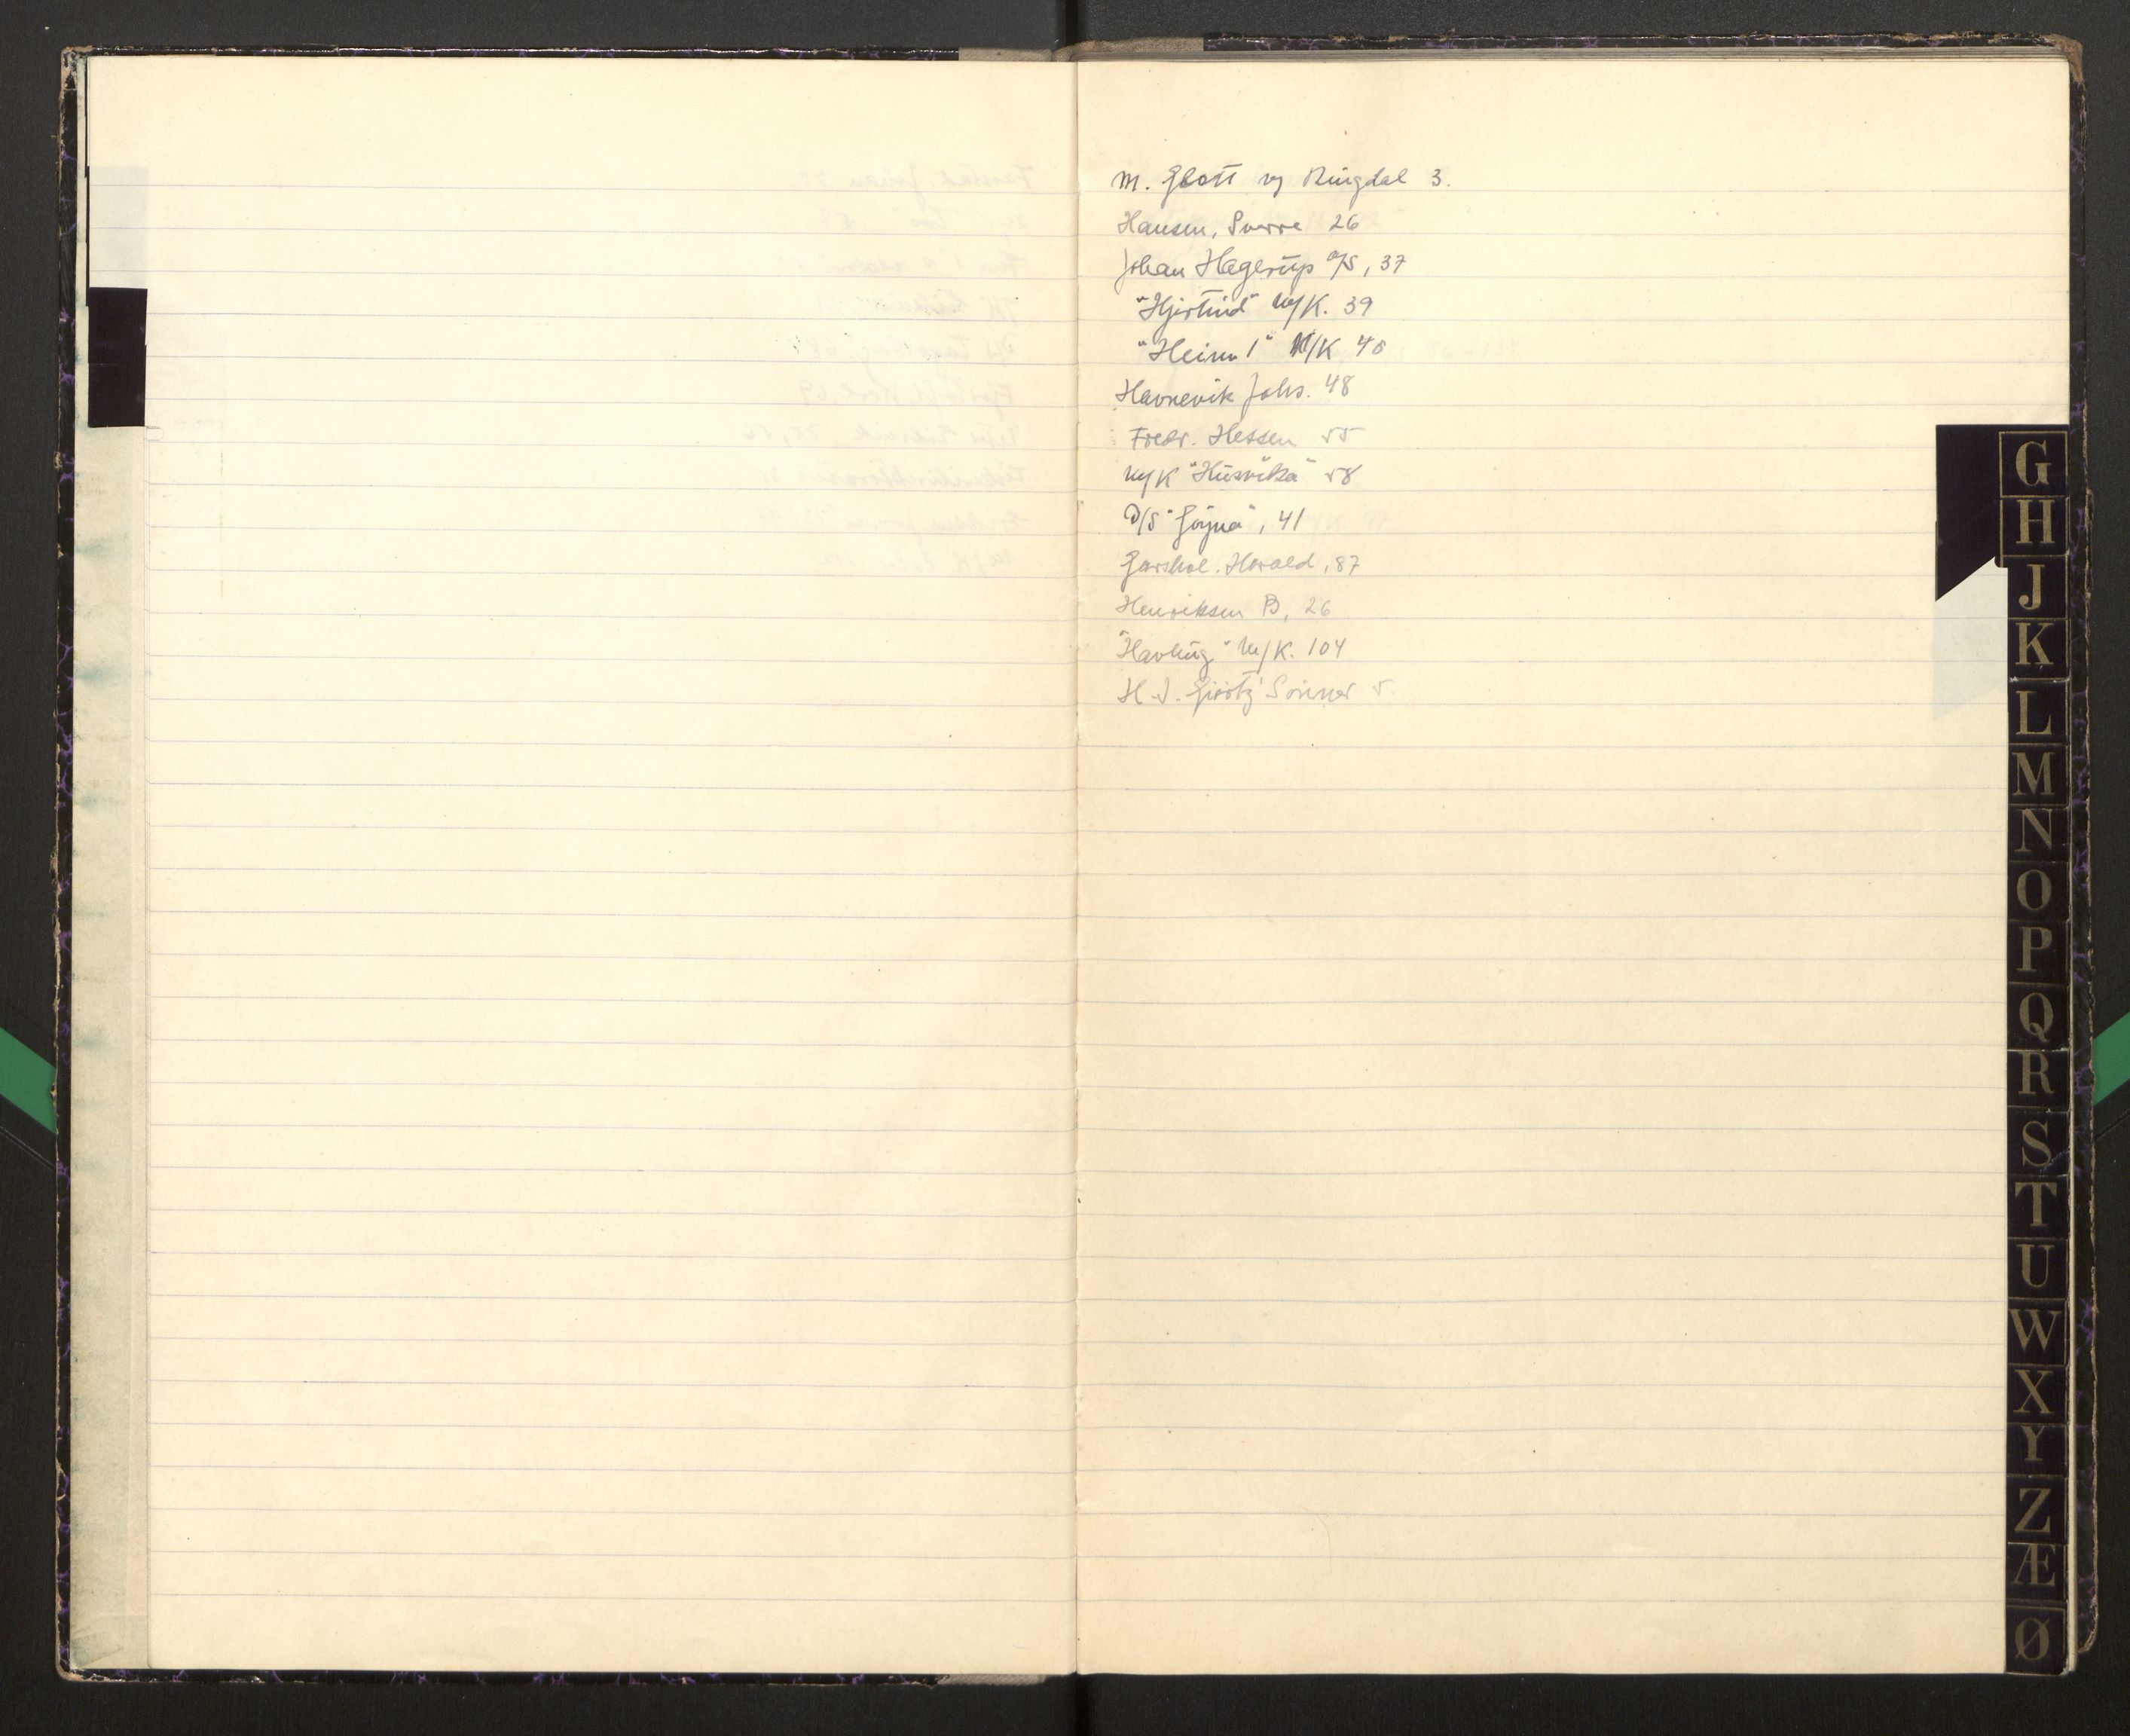 M. Glott og Ringdal 3.
Hansen, Sverre 26
Johan Hagerup A/S, 37
"Hjertind" M/K. 39
"Heim 1" M/K 40
Havnevik Johs. 48
Fredr. Hessen 55
M/K "Husvika" 58
D/S "Gøyna", 41
Garshol. Harald, 87
Henriksen B, 26
"Havling" M/K. 104
H. J. Sønner 5.
G
H
J
K
L
M
N
O
P
Q
R
S
T
U
W
X
Y
Z
Æ
Ø